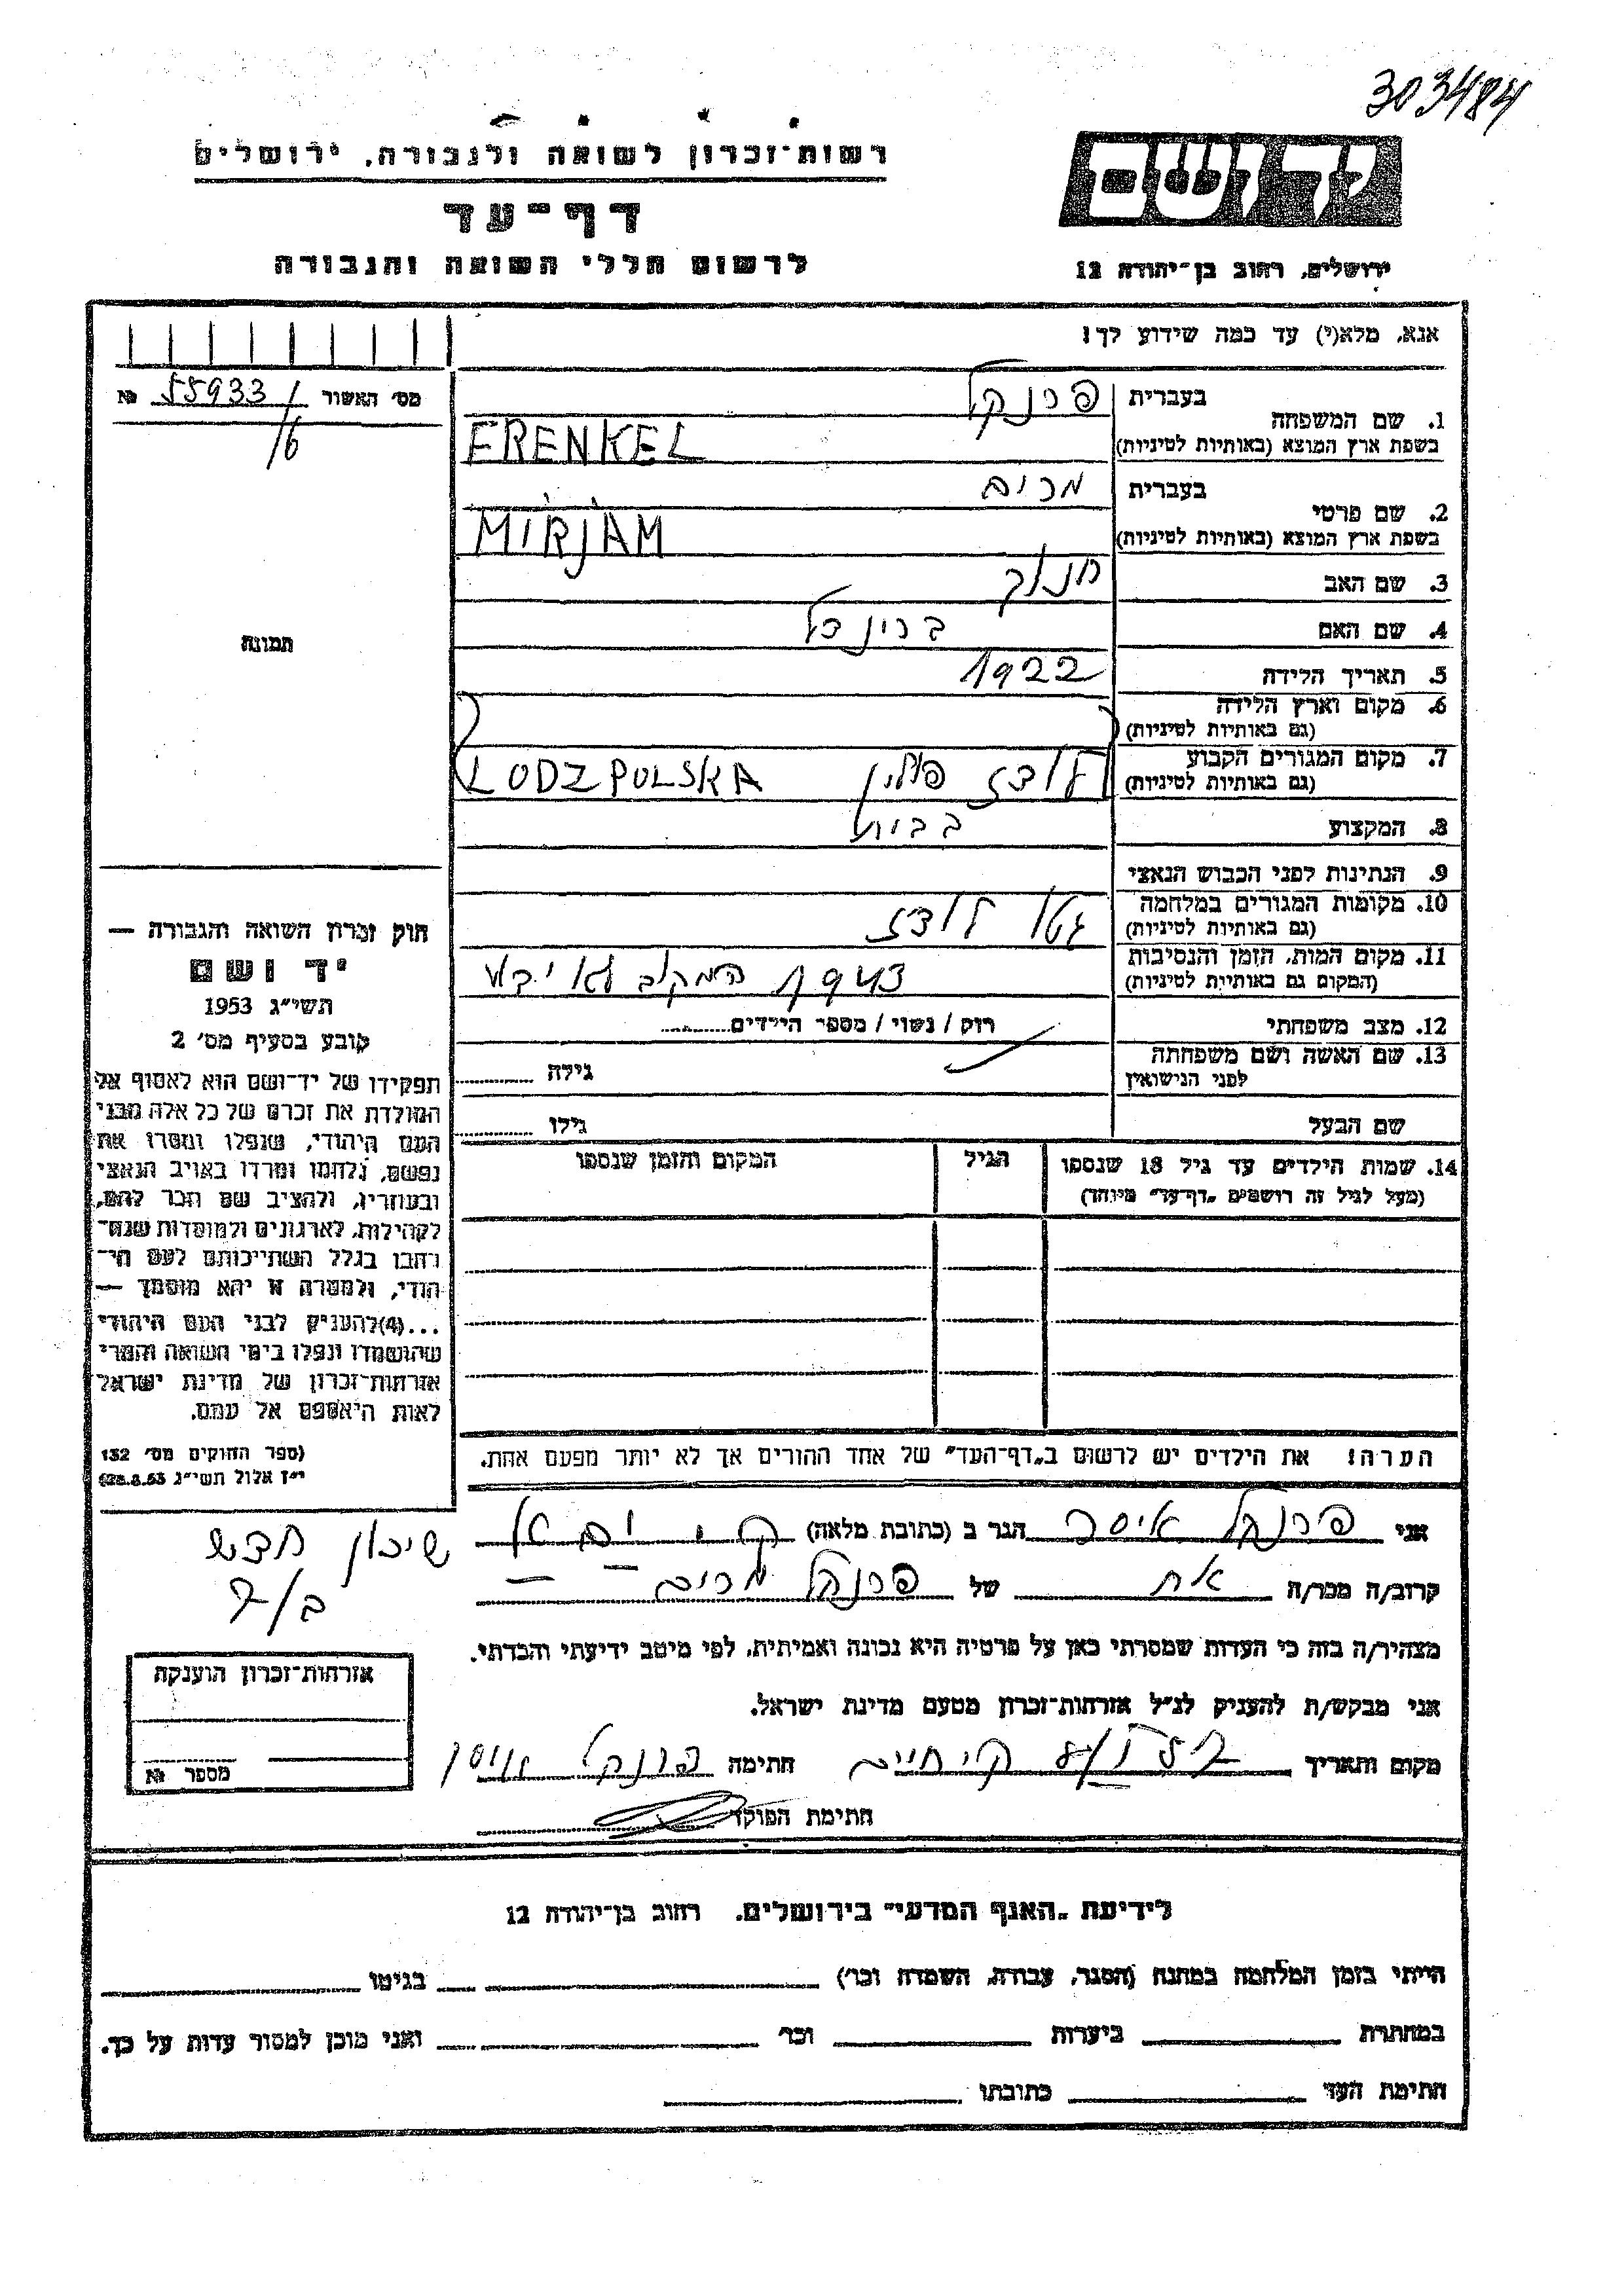 303484
רשות־זכרון לשואה ולגבורה, ירושלים
יד ושם
דף־עד
לרשום חללי השואה והגבורה
ירושלים, רחוב בן־יהודה 12
אנא, מלא(י) עד כמה שידוע לך!
מס׳ האשור 55933 №
/6
תמונה
1. שם המשפחה
בעברית פרנקל
בשפת ארץ המוצא (באותיות לטיניות) FRENKEL
2. שם פרטי
בעברית מרים
בשפת ארץ המוצא (באותיות לטיניות) MIRJAM
3. שם האב חנוך
4. שם האם
5. תאריך הלידה 1922
6. מקום וארץ הלידה
(גם באותיות לטיניות)
7. מקום המגורים הקבוע לודז פולין LODZ POLSKA
(גם באותיות לטיניות)
8. המקצוע בבית
9. הנתינות לפני הכבוש הנאצי
10. מקומות המגורים במלחמה גטו לודז
(גם באותיות לטיניות)
11. מקום המות, הזמן והנסיבות 1943 המקום לא ידוע
(המקום גם באותיות לטיניות)
12. מצב משפחתי רוק / נשוי / מספר הילדים
13. שם האשה ושם משפחתה
לפני הנישואין
גילה
שם הבעל גילו
14. שמות הילדים עד גיל 18 שנספו הגיל המקום והזמן שנספו
(מעל לגיל זה רושמים „דף־עד״ מיוחד)
הערה! את הילדים יש לרשום ב„דף־העד״ של אחד ההורים אך לא יותר מפעם אחת.
חוק זכרון השואה והגבורה —
יד ושם
תשי״ג 1953
קובע בסעיף מס׳ 2
תפקידו של יד־ושם הוא לאסוף אל
המולדת את זכרם של כל אלה מבני
העם היהודי, שנפלו ומסרו את
נפשם, נלחמו ומרדו באויב הנאצי
ובעוזריו, ולהציב שם וזכר להם,
לקהילות, לארגונים ולמוסדות שנח־
רבו בגלל השתייכותם לעם הי־
הודי, ולמטרה זו יהא מוסמך —
...(4)להעניק לבני העם היהודי
שהושמדו ונפלו בימי השואה והמרי
אזרחות־זכרון של מדינת ישראל
לאות היאספם אל עמם.
(ספר החוקים מס׳ 132
י״ז אלול תשי״ג 28.8.53)
אני פרנקל איסר הגר ב (כתובת מלאה) ק׳ ים
שיכון חדש
קרוב/ה מכר/ה אח של פרנקל מרים
מצהיר/ה בזה כי העדות שמסרתי כאן על פרטיה היא נכונה ואמיתית, לפי מיטב ידיעתי והכרתי.
אני מבקש/ת להעניק לנ״ל אזרחות־זכרון מטעם מדינת ישראל.
מקום ותאריך חתימה פרנקל איסר
חתימת הפוקד
אזרחות־זכרון הוענקה
מספר №
לידיעת „האגף המדעי״ בירושלים, רחוב בן־יהודה 12
הייתי בזמן המלחמה במחנה (הסגר, עבודה, השמדה וכו׳) בגיטו
במחתרת ביערות וכו׳ ואני מוכן למסור עדות על כך.
חתימת העד כתובתו